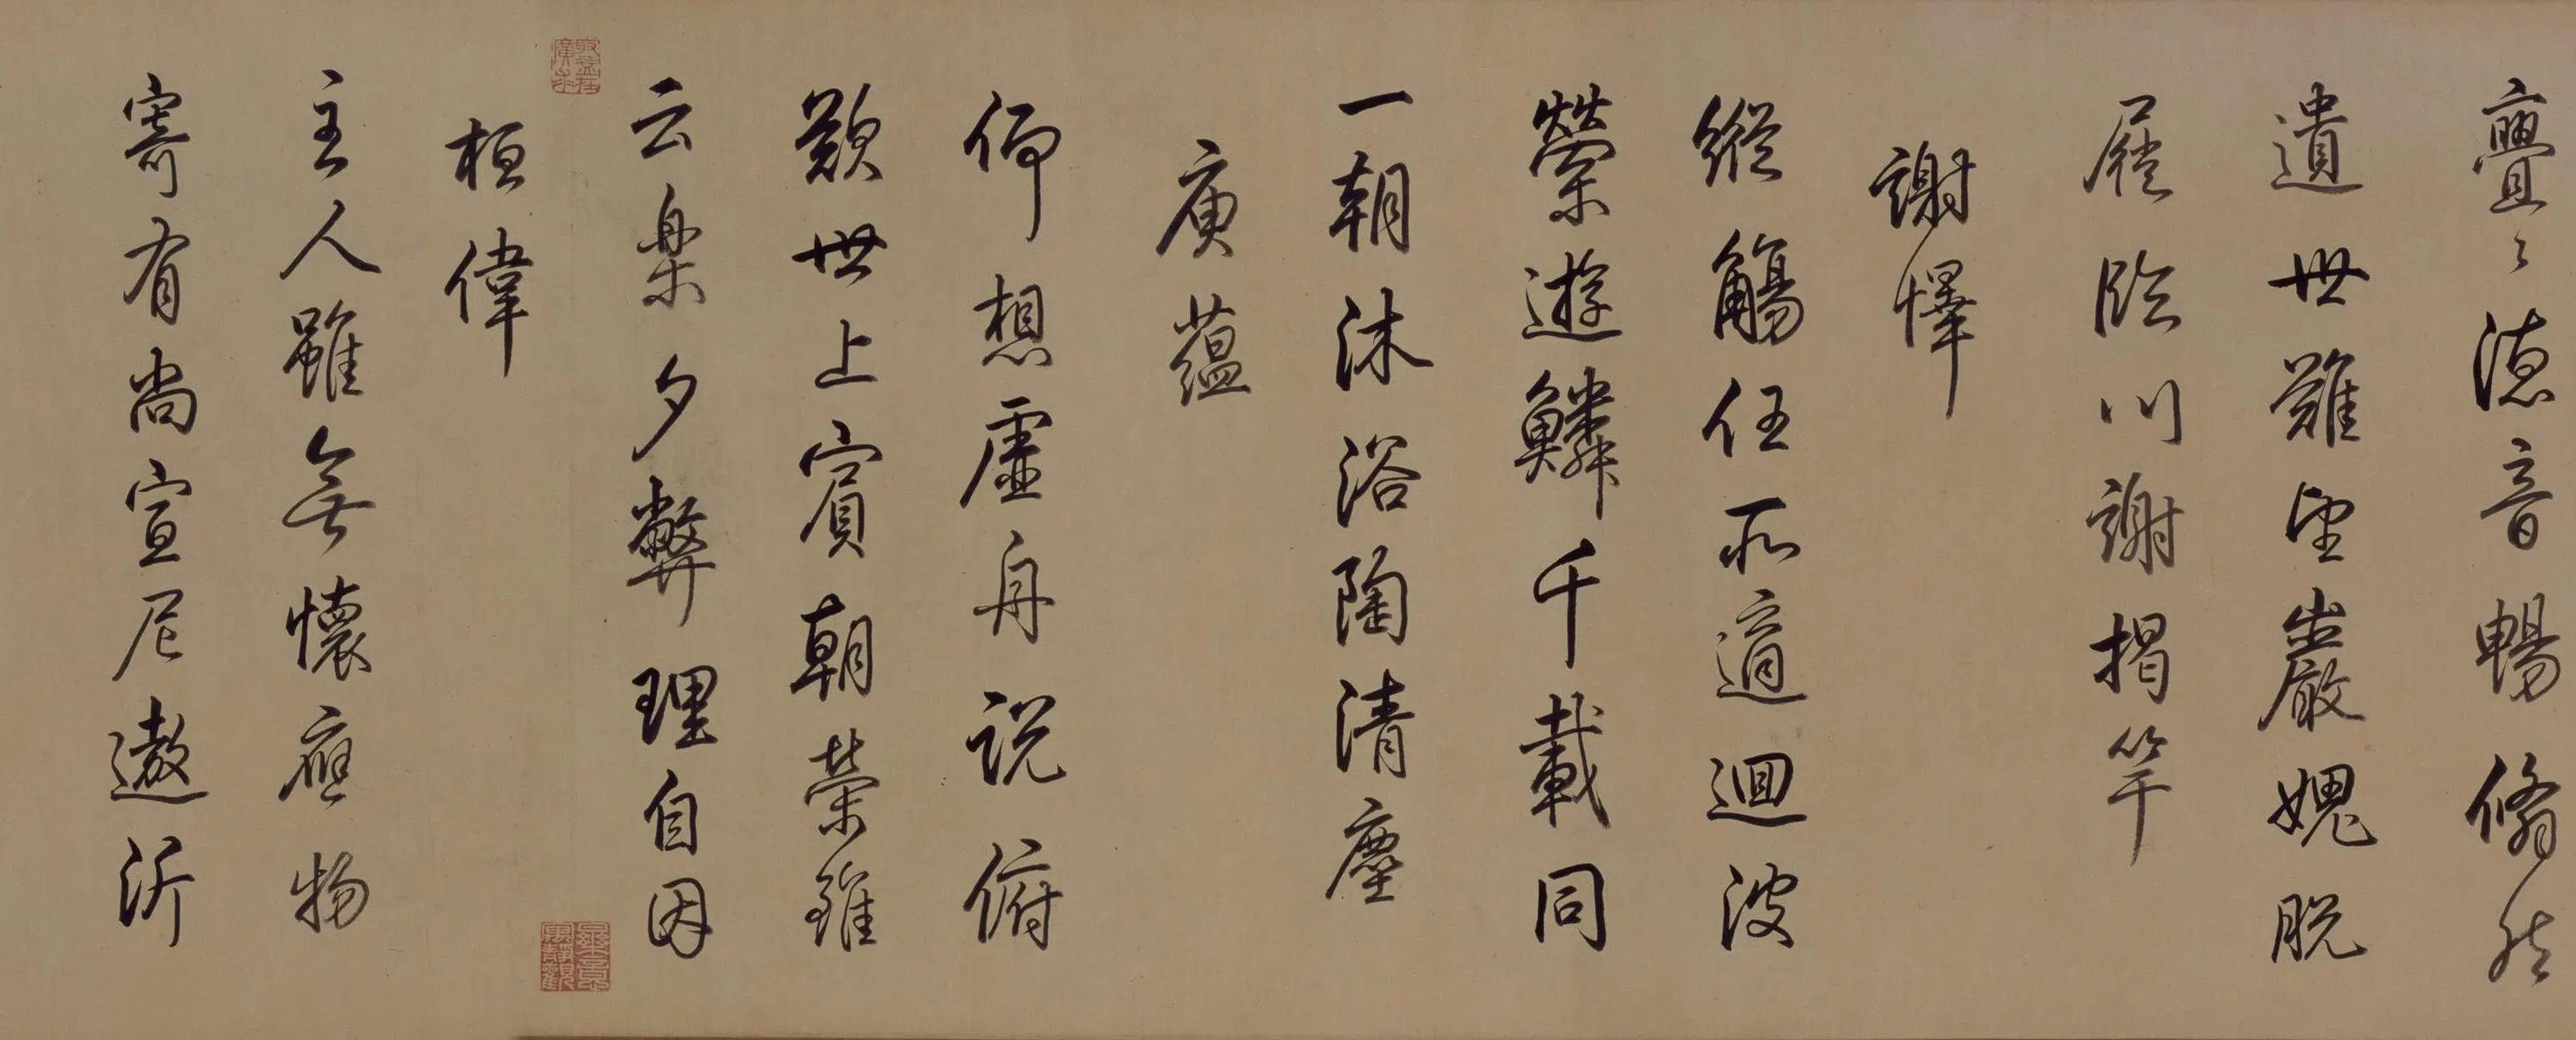 亹〻德音暢翛然
遺世難望巖愧脫
屣臨川謝揭竿
謝懌
縱觴任所適迴波
縈遊鱗千載同
一朝沐浴陶清塵
庾蘊
仰想虛舟說俯
歎世上賓朝榮雖
云樂夕弊理自因
桓偉
主人雖無懷應物
寄有尚宣尼遨沂